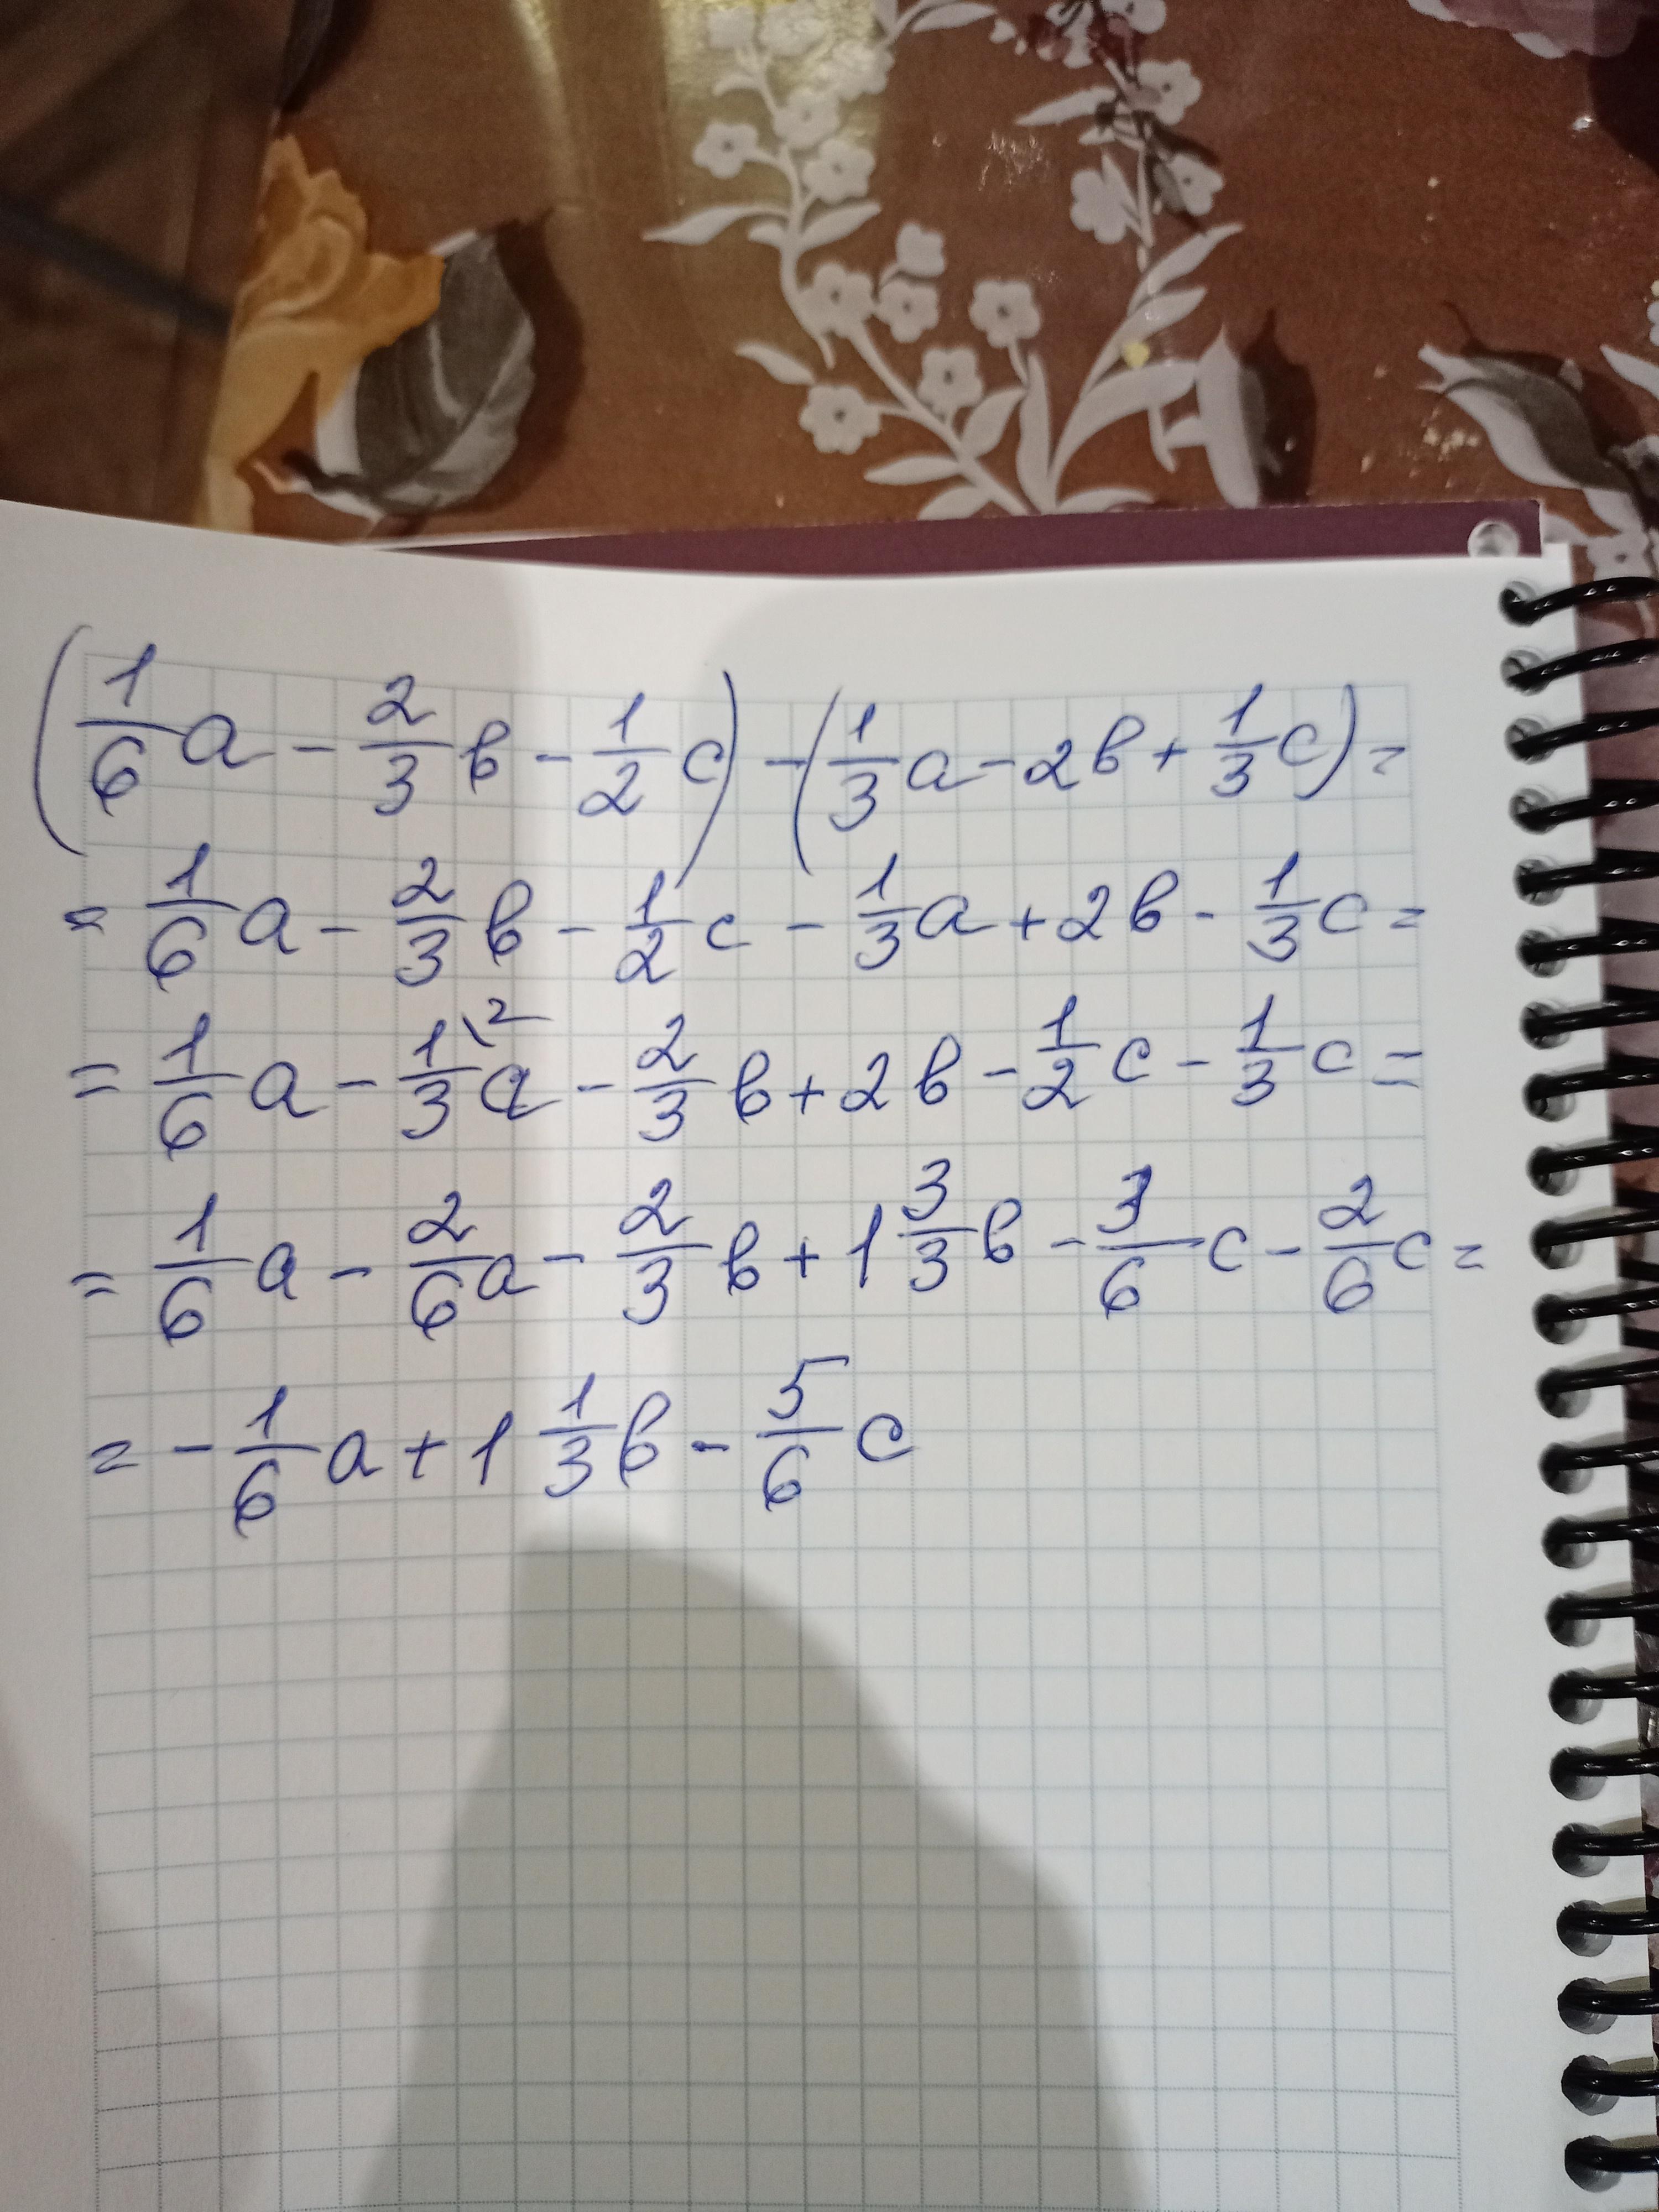 (1/6 a - 2/3 в - 1/2 c) - (1/3 a - 2в + 1/3 c) =
= 1/6 a - 2/3 в - 1/2 c - 1/3 a + 2в - 1/3 c =
= 1/6 a - 1\2/3 a - 2/3 в + 2в - 1/2 c - 1/3 c =
= 1/6 a - 2/6 a - 2/3 в + 1 3/3 в - 3/6 c - 2/6 c =
= - 1/6 a + 1 1/3 в - 5/6 c